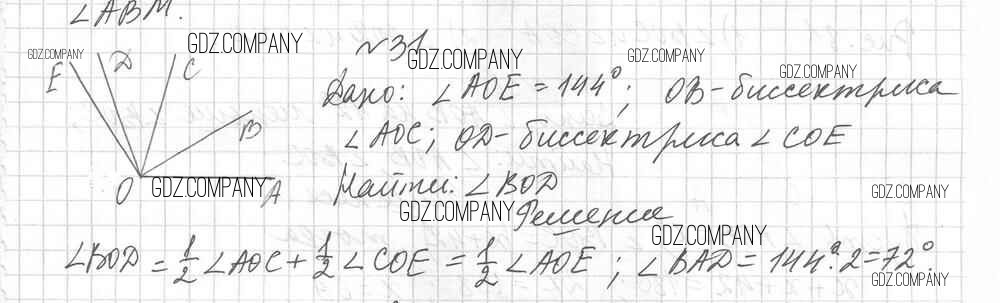 ∠ABM.
GDZ.COMPANY
GDZ.COMPANY
E D C
B
O A
GDZ.COMPANY
№31
GDZ.COMPANY
GDZ.COMPANY
GDZ.COMPANY
Дано: ∠AOE = 144°; OB - биссектриса
∠AOC; OD - биссектриса ∠COE
Найти: ∠BOD
GDZ.COMPANY
GDZ.COMPANY
Решение
GDZ.COMPANY
∠BOD = 1/2 ∠AOC + 1/2 ∠COE = 1/2 ∠AOE; ∠BAD = 144°:2 = 72°.
GDZ.COMPANY